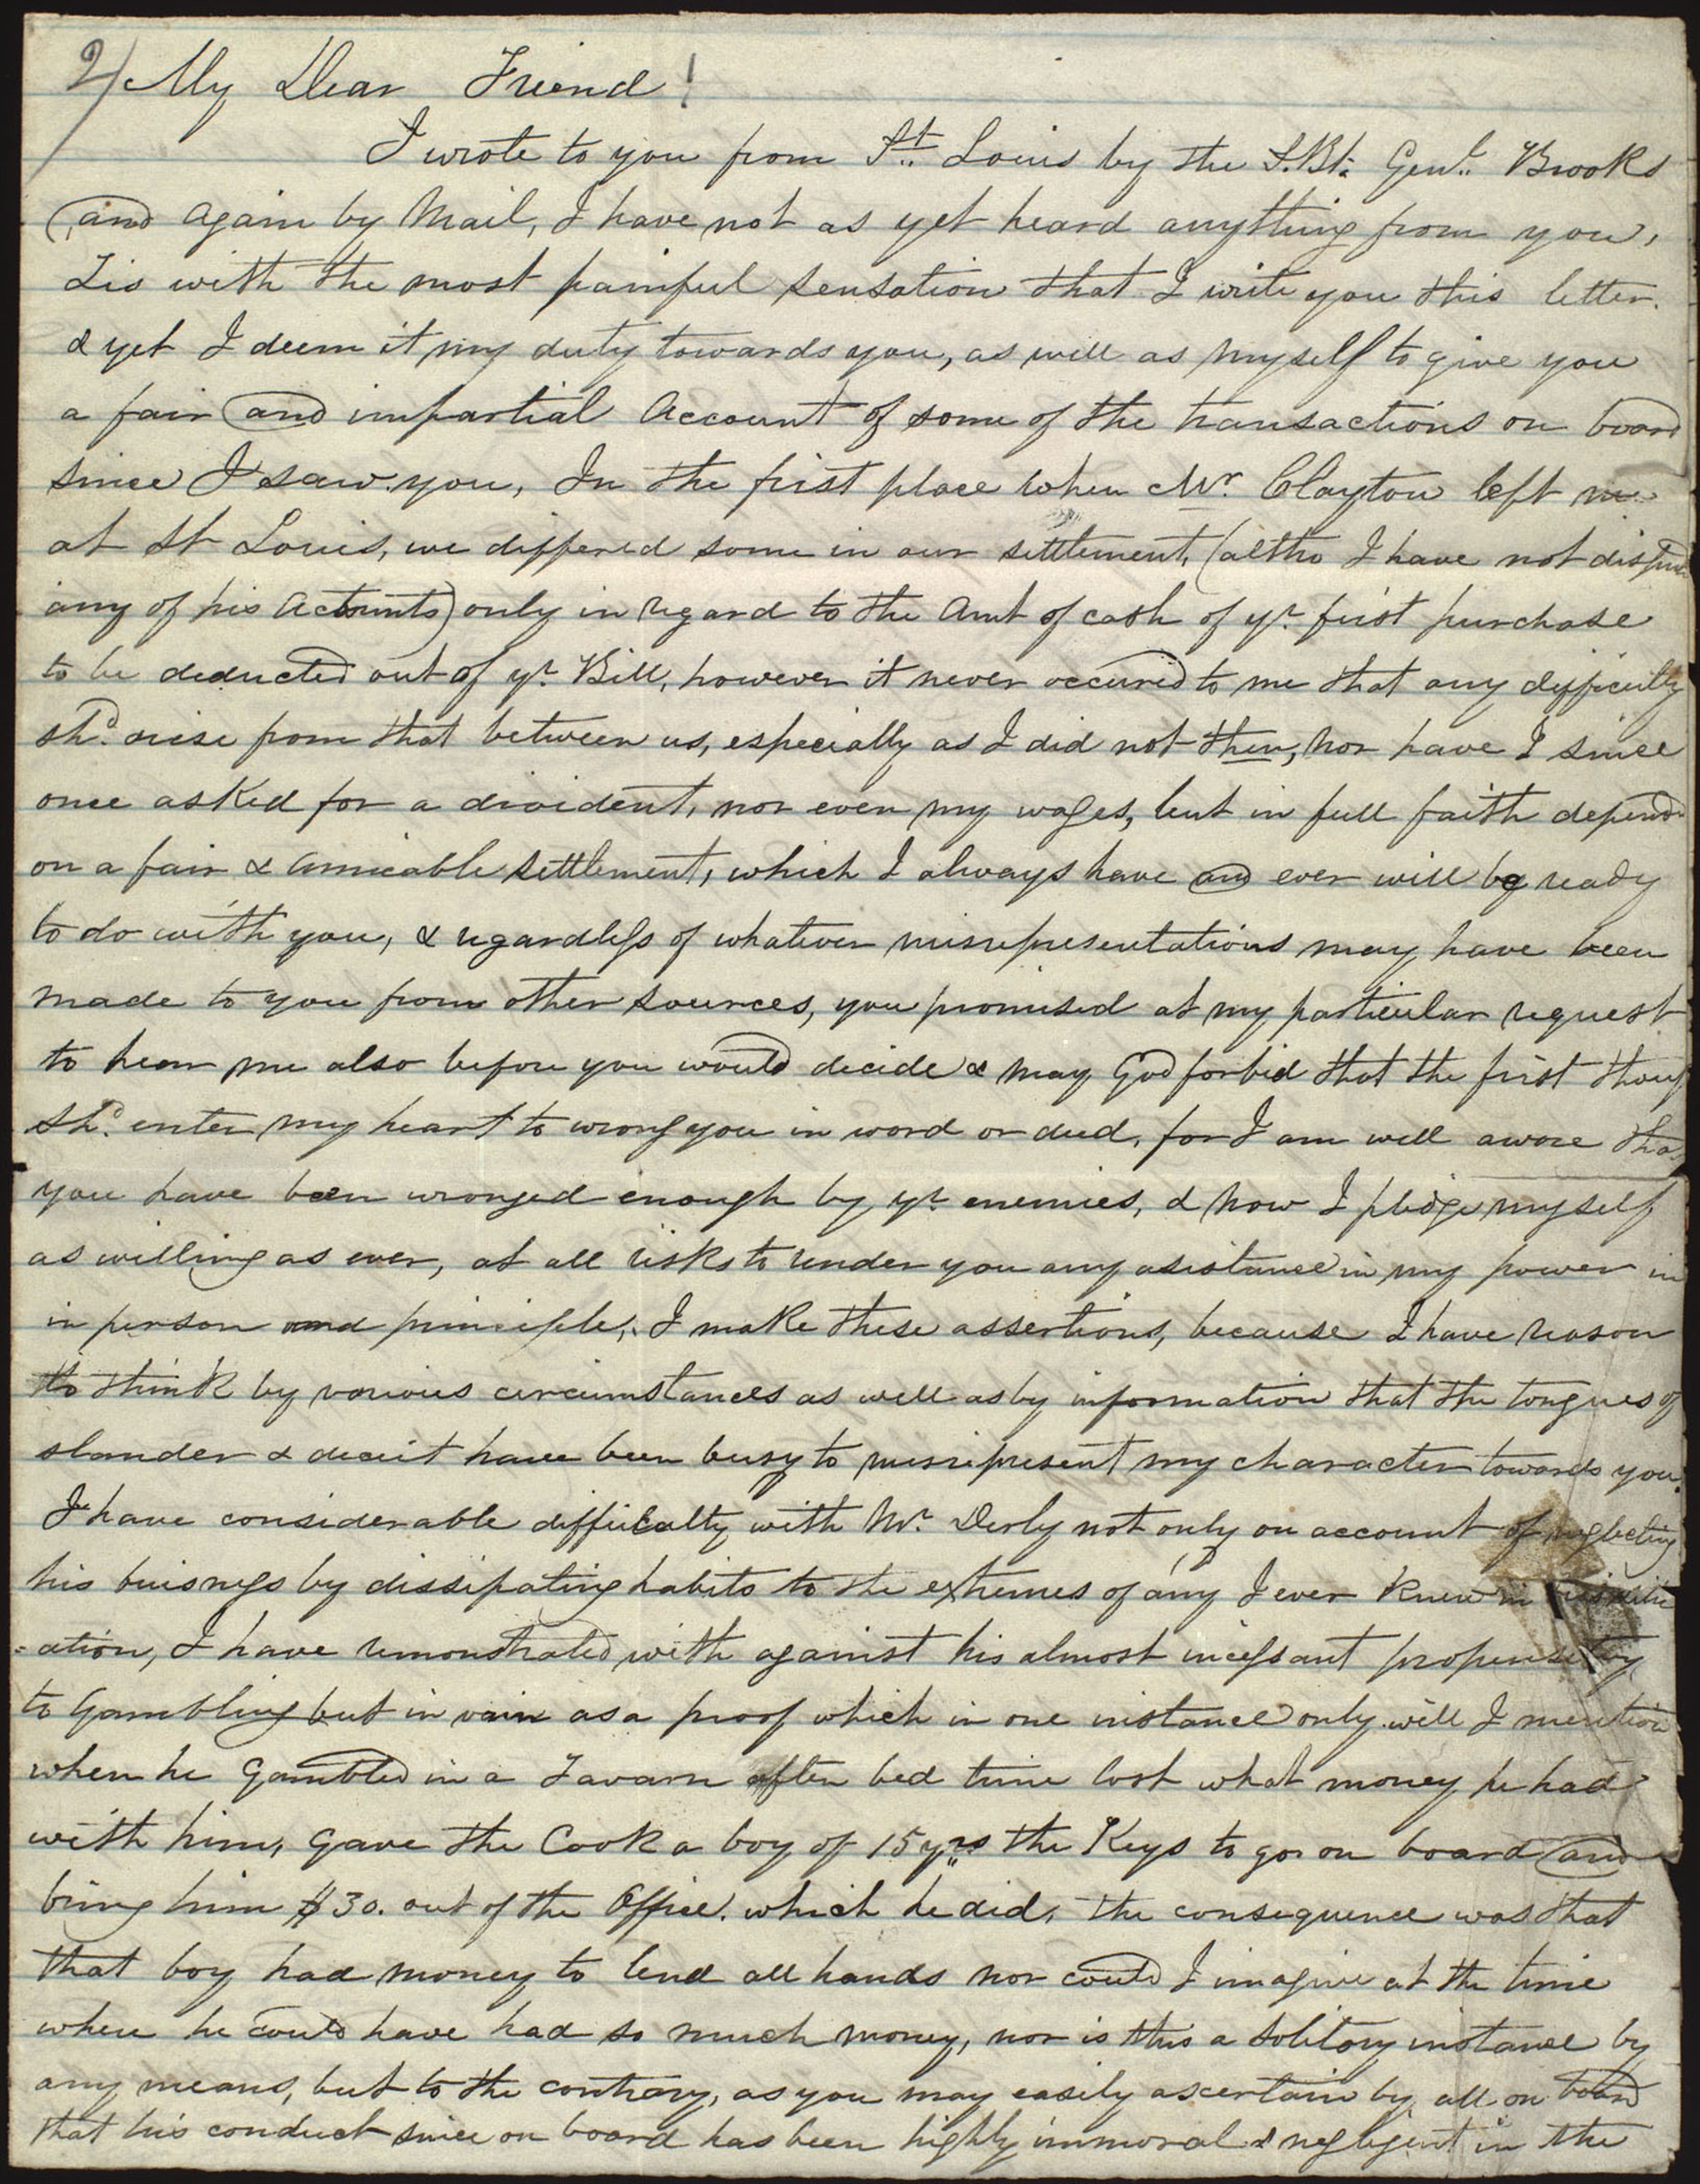 2/ My Dear Friend!
I wrote to you from St. Louis by the S.Bt. Genl. Brooks
and again by Mail, I have not as yet heard anything from you,
Tis with the most painful sensation that I write you this letter.
& yet I deem it my duty towards you, as well as myself to give you
a fair and impartial Account of some of the transactions on board
since I saw you, In the first place when Mr. Clayton left me
at St Louis, we differed some in our settlement, (altho I have not
any of his Accounts) only in regard to the Amt of cash of yr. first purchase
to be deducted out of yr. Bill, however it never occured to me that any difficulty
shd. arise from that between us, especially as I did not then, nor have I since
once asked for a divident, nor even my wages, but in full faith depend
on a fair & amicable settlement, which I always have and ever will be ready
to do with you, & regardless of whatever misrepresentations may have been
made to you from other sources, you promised at my particular request
to hear me also before you would decide & may God forbid that the first thoug
shd. enter my heart to wrong you in word or deed, for I am well aware tha
you have been wronged enough by yr. enemies, & now I pledge myself
as willing as ever, at all risks to render you any asistance in my power in
in person and principle, I make these assertions, because I have reason
to think by various circumstances as well as by information that the tongues of
slander & deceit have been busy to misrepresent my character towards you.
I have considerable difficulty with Mr. Derly not only on account of neglecting
his buisness by dissipating habits to the extremes of any I ever knew in
=ation, I have remonstrated with against his almost incessant propensity
to Gambling but in vain as a proof which in one instance only will I mention
when he Gambled in a Tavarn after bed time lost what money he had
with him, Gave the Cook a boy of 15 yrs the Keys to go on board and
bring him $30. out of the Office. which he did, the consequence was that
that boy had money to lend all hands nor could I imagine at the time
where he could have had so much money, nor is this a solitory instance by
any means, but to the contrary, as you may easily ascertain by all on board
that his conduct since on board has been highly immoral & negligent in the